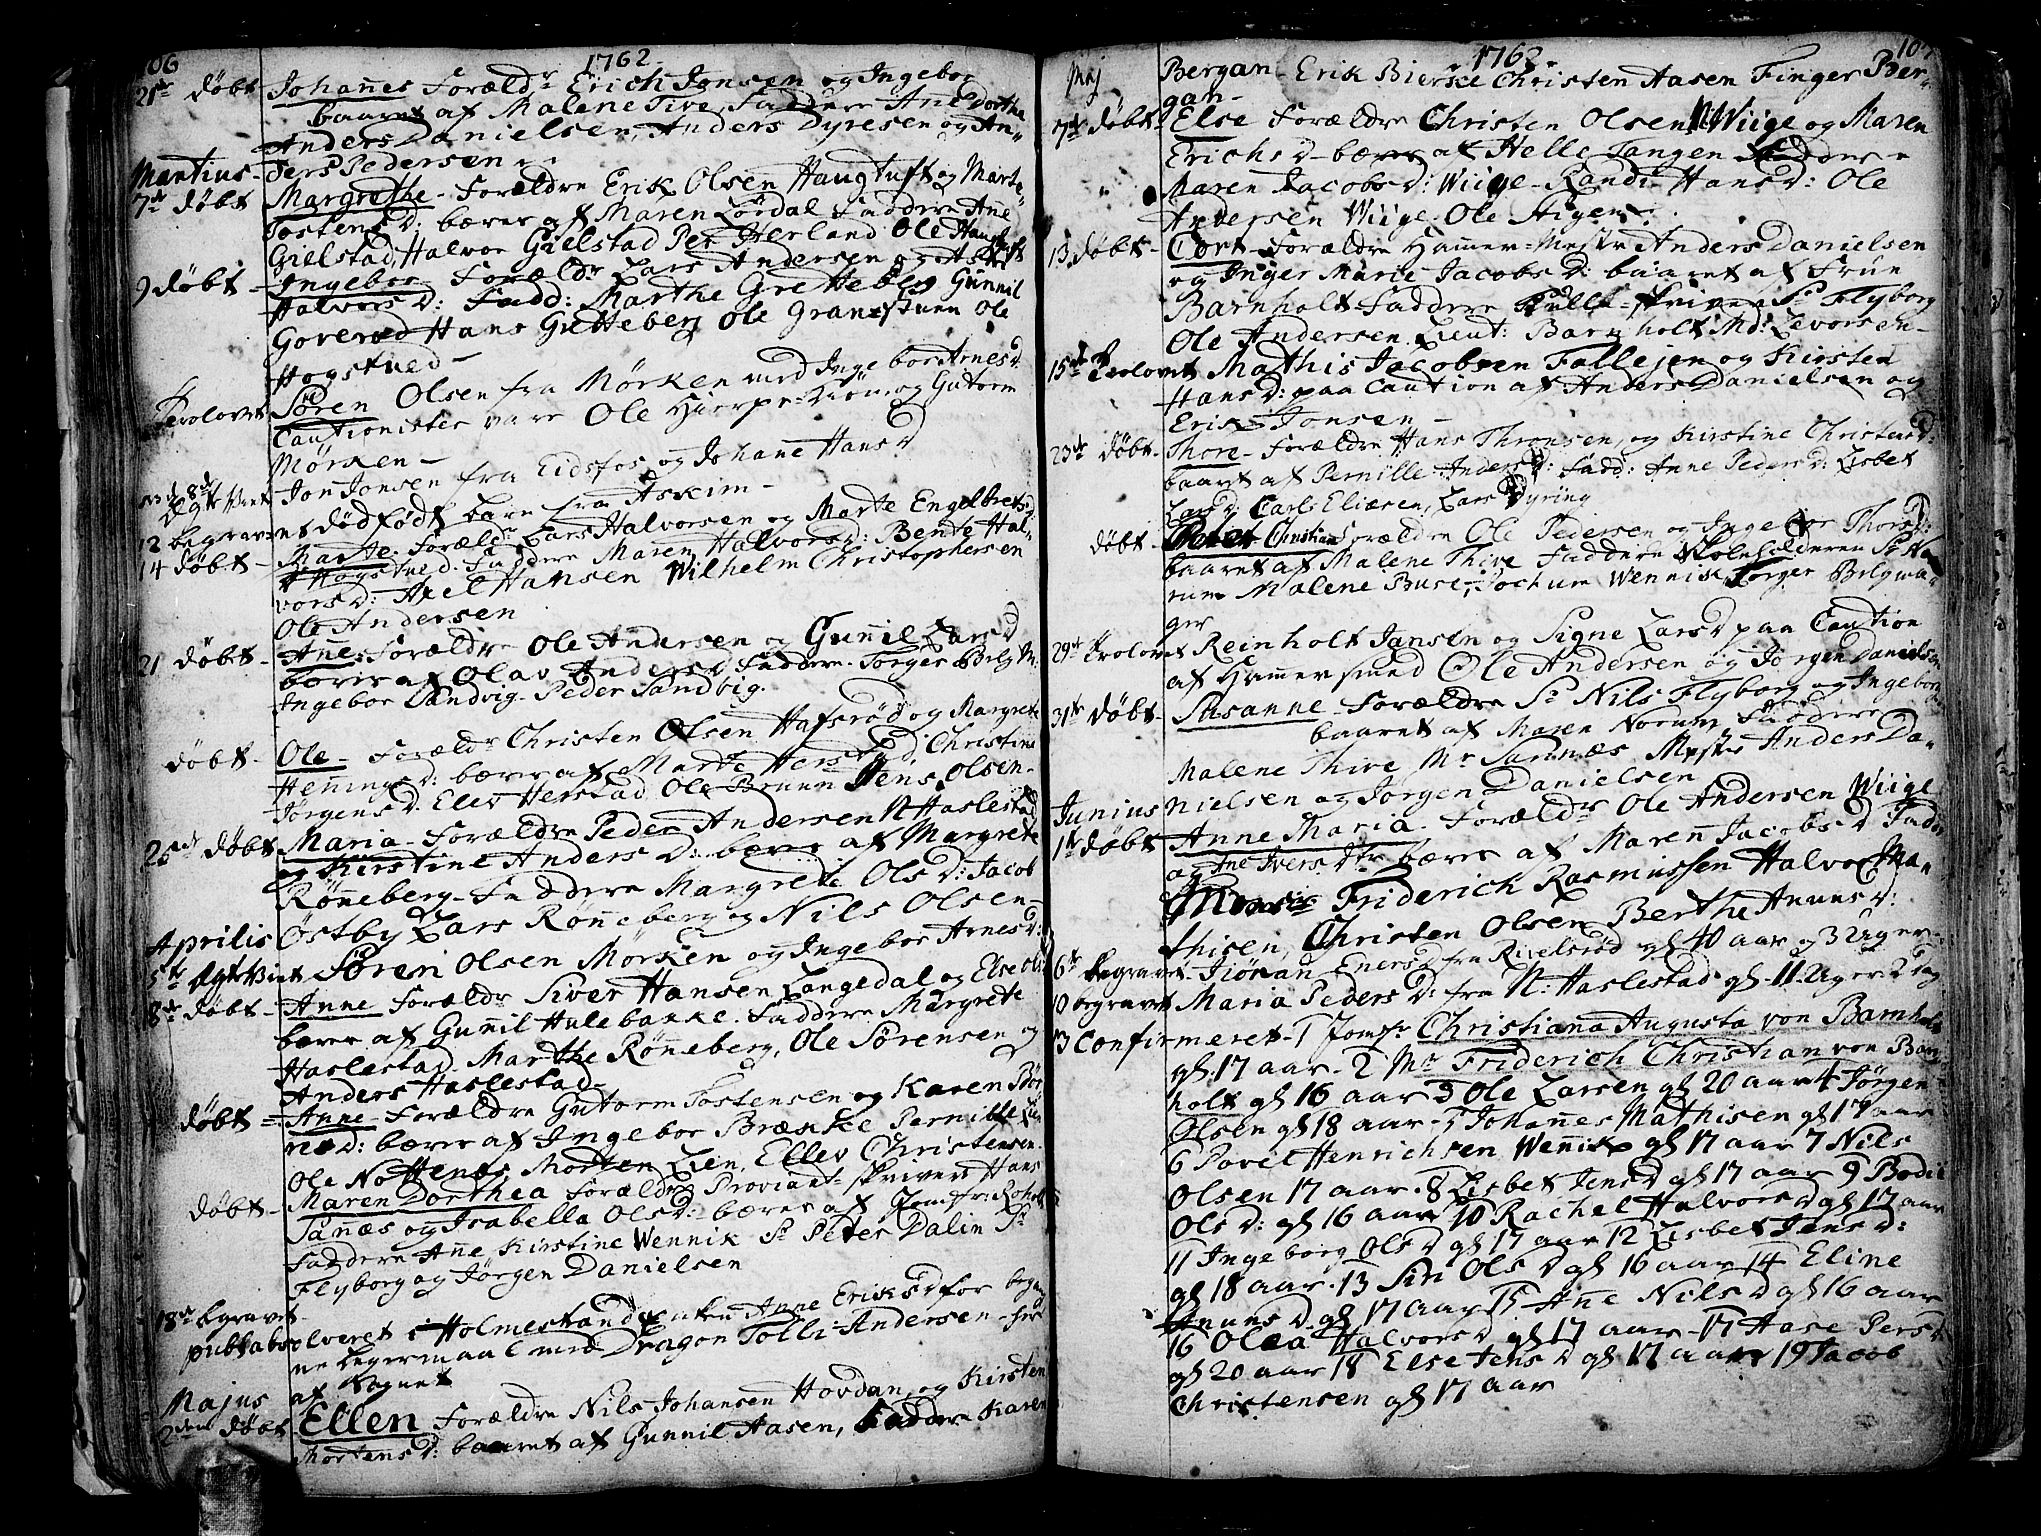 106 1762
21de döbt Johannes Forældr Erich Jonsen og Ingebor
baaret af Malene Tive, Faddere Ane Dorthe
Anders Danielsen, Anders Dyresen og An
ders Pedersen
Martius
7de döbt Margrethe - Forældre Erik Olsen Haugtuft og Marte
Tostens D: bæres af Maren Lördal Faddere Ane
Gielstad, Halvor Gielstad Per Herland Ole Haugtuft
9 döbt - Ingebor - Forældr Lars Andersen og
Halvors D: Fadd: Marthe Gretteberg Gunnil
Goverød Hans Gretteberg Ole Granestuen Ole
Hogstved -
Trolovet Sören Olsen fra Mørken med Ingebor Arnes D
Cautionister vare Ole Hiorpekiön og Gutorm
Mørken -
Jon Jonsen fra Eidsfos og Johane Hans D
12 begravet et dödfödt barn fra Askim -
14 döbt - Marte - Foræld: Lars Halvorsen og Marte Engelbrets D
Hogstved. Faddere Maren Halvors D: Bente Hal-
vors D: Axel Hansen Wilhelm Christophersen
Ole Andersen
21 döbt - Ane - Forældre Ole Andersen og Gunnil Lars D
bæres af Olav Anders D Faddere - Torger Belg M.
Ingebor Sandvig - Peder Sandvig.
döbt - Ole - Foræld: Christen Olsen Hafsröd og Margrete
Hennings D: bæres af Marte Herstad Christine
Jörgens D. Elev Herstad Ole Bruun Jens Olsen -
25de döbt Maria - Forældre Peder Andersen N Haslestad
og Kirstine Anders D: bæres af Margrete
Rönneberg - Faddere Margrete Ols D: Jacob
Östby Lars Rönneberg og Nils Olsen -
Aprilis
5te Egteviet Sören Olsen Mørken og Ingebor Arnes D:
8de döbt - Anne Forældr Siver Hansen Langedal og Else Ols
bæres af Gunnil Hulebakke. Faddere Margrete
Haslestad Marthe Rönneberg, Ole Sörensen og
Anders Haslestad -
döbt = Anne - Forældre Gutorm Tostensen og Karen Bör
res D: bæres af Ingebor Brække Pernille Lien
Ole Nottenes, Morten Lien, Ellev Christensen.
döbt - Maren Dorthea Forældr Proviantskriver Hans
Sanæs og Isabella Ols D: bæres af Jomfr: Roholt
Faddere Ane Kirstine Wennik Sr Peter Dalin Sr
Flyborg og Jörgen Danielsen
18de begravet
publ: absolveret i Holmestrand Anne Eriks D for began
ne Legermaal med Dragon Tolli Andersen - her
af Sognet
Majus
2den döbt Ellen Forældre Nils Johansen Hovdan og Kirsten
Mortens D: baaret af Gunnil Aasen, Faddere Karen
Maj 1762 107
Bergan - Erik Bierke Christen Aasen Finger Ber-
gan -
7de döbt Else Forældre Christen Olsen N Wiige og Maren
Erichs D - bæres af Helle Tangen Faddere
Maren Jacobs D: Wiige - Randi Hans D: Ole
Andersen Wiige Ole Stigen.
13 döbt - Cort - Forældre Hammer-Mestr Anders Danielsen
og Inger Marie Jacobs D: baaret af Frue
Barnholt Faddere Kull-skriver Sr Flyborg
Ole Andersen Lieut: Barnholt Md: Levorsen -
15de Trolovet Mathis Jacobsen Fallejen og Kirsten
Hans D: paa Caution af Anders Danielsen og
Erik Jonsen -
23de döbt - Thore - Forældre Hans Thronsen, og Kirstine Christens D:
baaret af Pernille Anders D: Fadd: Anne Peders D: Lisbet
Lars D: Carl Eliæsen, Lars Dyring
döbt - Peter Christian Forældre Ole Pedersen og Ingebor Thors D:
baaret af Malene Thive Faddere Skoleholderen Sr No
rum Malene Buse, Jochum Wennik, Torger Belgma-
ger
29de Trolovet Reinholt Jansen og Signe Lars D paa Caution
af Hammersmed Ole Andersen og Jörgen Danielsen
31te döbt - Susanne Forældre Sr Nils Flyborg og Ingeborg
baaret af Maren Norum Faddere
Malene Thive Mr Sannæs Mester Anders Da-
nielsen og Jörgen Danielsen
Junius
1te döbt Anne Maria - Foræld: Ole Andersen Wiige
og Ane Ivers Dtr bæres af Maren Jacobs D Fadd
Friderich Rasmussen Halvor Ma-
thisen, Christen Olsen Berthe Anuns D:
6te begravet - Jöran Eners D fra Rivelsröd gl 40 aar og 3 Uger -
10 begravet Maria Peders D: fra N: Haslestad gl - 11 Uger 2 dag
13 Confirmeret - 1 Jomfr Christiana Augusta von Barnholt
gl. 17 aar - 2 Mr Friderich Christian von Barn
holt gl 16 aar 3 Ole Larsen gl 20 aar 4 Jörgen
Olsen gl 18 aar - 5 Johannes Mathisen gl 17 aar
6 Povel Henrichsen Wennik gl 17 aar 7 Nils
Olsen 17 aar. 8 Lisbet Jens D gl 17 aar 9 Bodil
Ols D: gl 16 aar 10 Rachel Halvors D gl 17 aar
11 Ingeborg Ols D gl 17 aar 12 Lisbet Jens D:
gl 18 aar. 13 Siri Ols D gl 16 aar 14 Eline
Anuns D gl 17 aar 15 Ane Nils D gl 16 aar
16 Olea Halvors D gl 17 aar - 17 Aase Pers D
gl 20 aar 18 Else Jens D gl 17 aar 19 Jacob
Christensen gl 17 aar